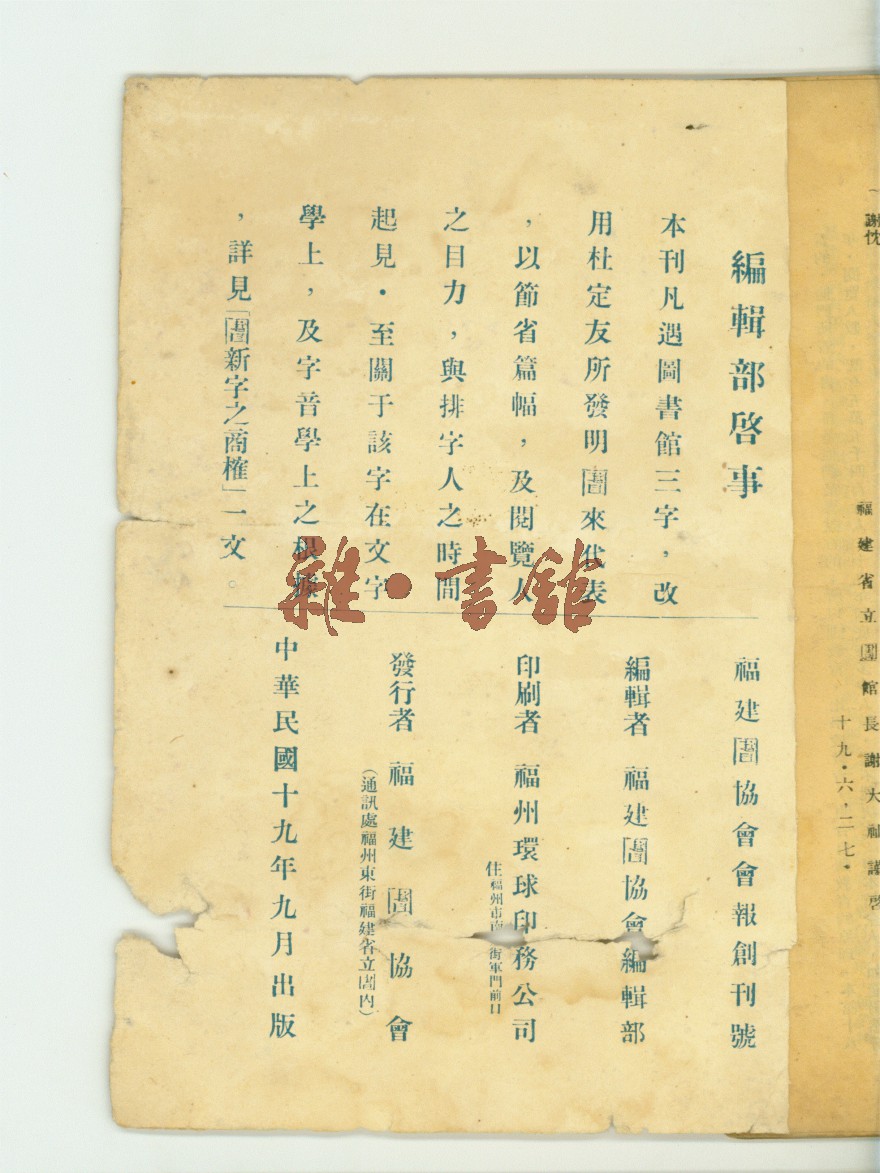 謝忱
福建省立圕館長謝大祉謹啓
十九・六・二七・
編輯部啓事
本刊凡遇圖書館三字，改
用杜定友所發明圕來代表
，以節省篇幅，及閱覽人
之目力，與排字人之時間
起見・至關于該字在文字
學上，及字音學上之根據
，詳見「圕新字之商榷」一文。
福建圕協會會報創刊號
編輯者 福建圕協會編輯部
印刷者 福州環球印務公司
住福州市南 街軍門前口
發行者 福建圕協會
（通訊處福州東街福建省立圕內）
中華民國十九年九月出版
雜・書館